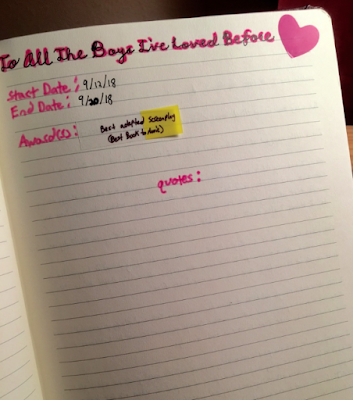 To All The Boys I've Loved Before
Start Date: 9/12/18
End Date: 9/20/18
Award(s): Best adapted Screenplay
(Best Book to Movie)
quotes: